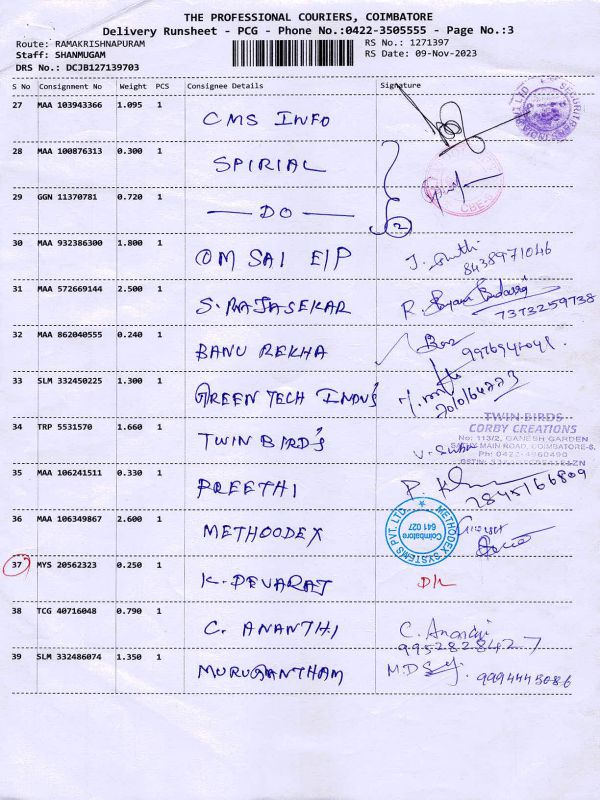 THE PROFESSIONAL COURIERS, COIMBATORE
Delivery Runsheet - PCG - Phone No.:0422-3505555 - Page No.:3
Route: RAMAKRISHNAPURAM
RS No.: 1271397
Staff: SHANMUGAM
RS Date: 09-Nov-2023
DRS No.: DCJB127139703
S No Consignment No Weight PCS Consignee Details Signature
27 MAA 103943366 1.095 1 CMS INFO
28 MAA 100876313 0.300 1 SPIRIAL
29 GGN 11370781 0.720 1 — DO — 2
30 MAA 932386300 1.800 1 OM SAI E/P
8438971046
31 MAA 572669144 2.500 1 S. RAJASEKAR R.
7373259738
32 MAA 862040555 0.240 1 BANU REKHA
33 SLM 332450225 1.300 1 GREEN TECH INDU'S
34 TRP 5531570 1.660 1 TWIN BIRD'S
TWIN BIRDS
CORBY CREATIONS
No: 113/2, GANESH GARDEN
SATHY MAIN ROAD, COIMBATORE-6.
Ph: 0422-4960490
35 MAA 106241511 0.330 1 PREETHI P.
2845166809
36 MAA 106349867 2.600 1 METHOODEX
METHODEX SYSTEMS PVT. LTD.
Coimbatore
641 027
37 MYS 20562323 0.250 1 K. DEVARAJ D/L
38 TCG 40716048 0.790 1 C. ANANTHI C.
9952828427
39 SLM 332486074 1.350 1 MURUGANTHAM M.D
9994445086